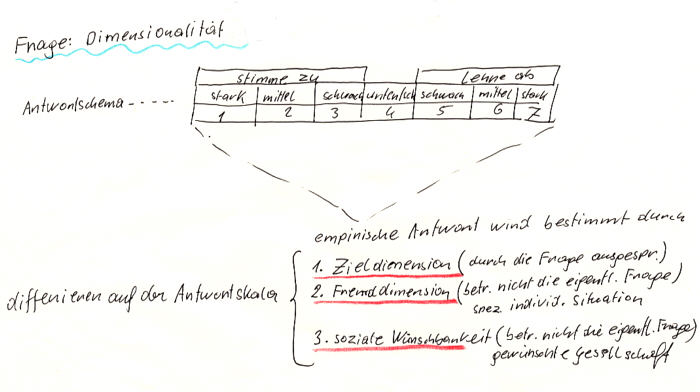 Frage: Dimensionalität
stimme zu Lehne ab
Antwortschema - - - - -
stark mittel schwach unentsch schwach mittel stark
1 2 3 4 5 6 7
empirische Antwort wird bestimmt durch
1. Zieldimension (durch die Frage angespr.)
differieren auf der Antwortskala
2. Fremddimension (betr. nicht die eigentl. Frage)
spez individ. Situation
3. soziale Wünschbarkeit (betr. nicht die eigentl. Frage)
gewünschte Gesellschaft